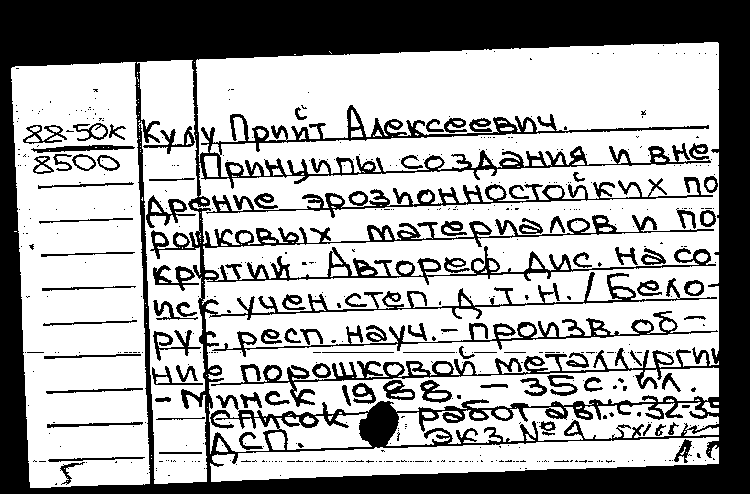 88-50к
8500
Кулу, Прийт Алексеевич.
Принципы создания и вне-
дрение эрозионностойких по
рошковых материалов и по
крытий: Автореф. дис. на со-
иск. учен. степ. д.т.н. / Бело-
рус. респ. науч.-произв. об-
ние порошковой металлургии
- Минск, 1988. - 35с.: ил.
Список работ авт.: с. 32-35
ДСП. Экз. №4.
5